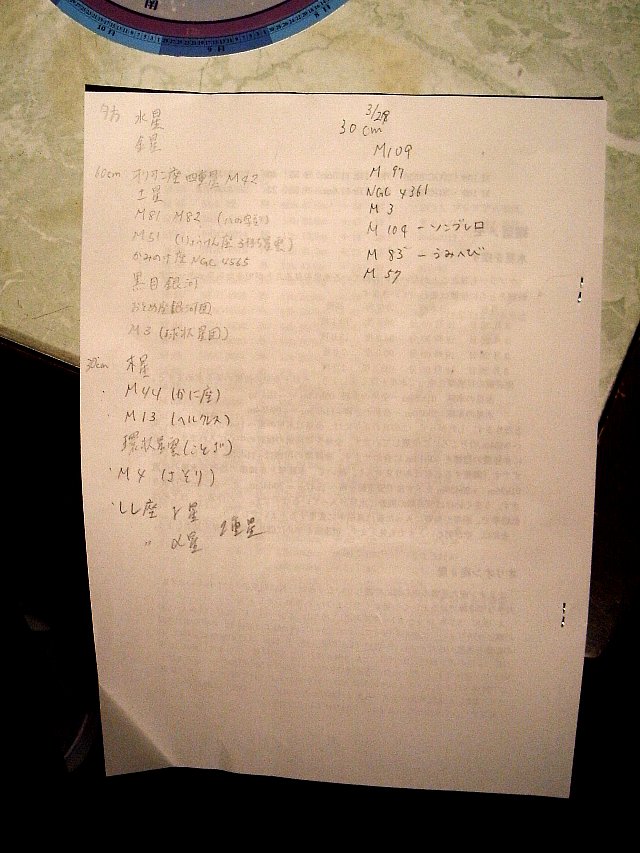 夕方 水星
金星
60cm オリオン座 四重星 M42
土星
M81 M82
M51 (りょうけん座 子持ち星雲)
かみのけ座 NGC 4565
黒目銀河
おとめ座銀河団
M3 (球状星団)
30cm 木星
M44 (かに座)
M13 (ヘルクレス)
環状星雲 (ことざ)
M4 (さそり)
しし座 γ星
〃 α星 2重星
3/29
30cm
M109
M97
NGC 4361
M3
M104 - ソンブレロ
M83 - うみへび
M57